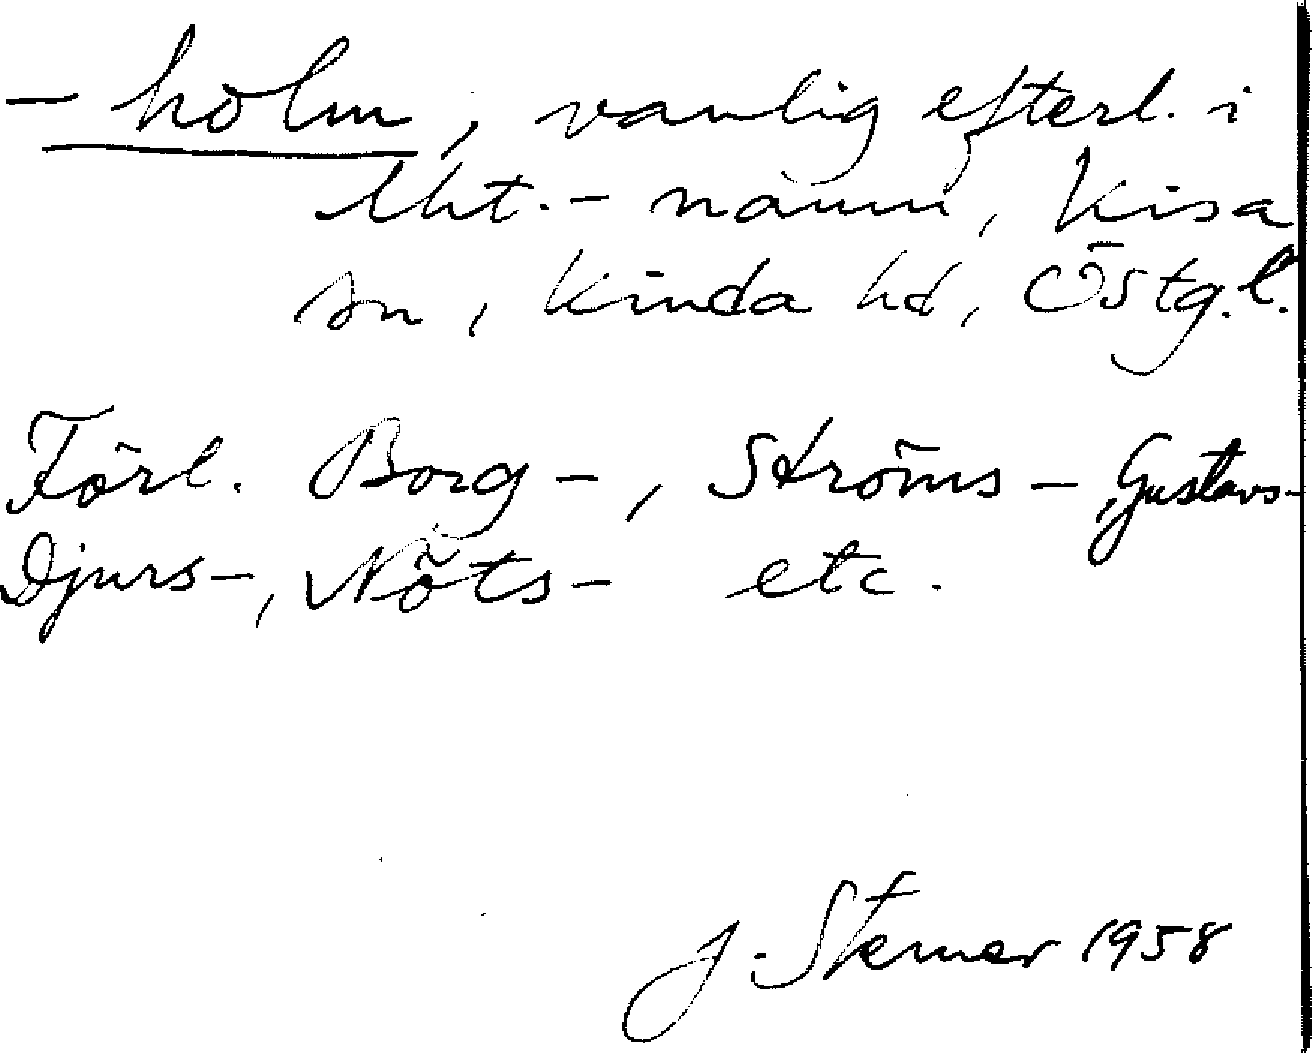 - holm, vanlig efterl. i
lht.- namn, Kisa
sn, Kinda hd, Östg.l.
Förl. Borg-, Ströms-, Gustavs-
Djurs-, Nöts- etc.
J. Sterner 1958